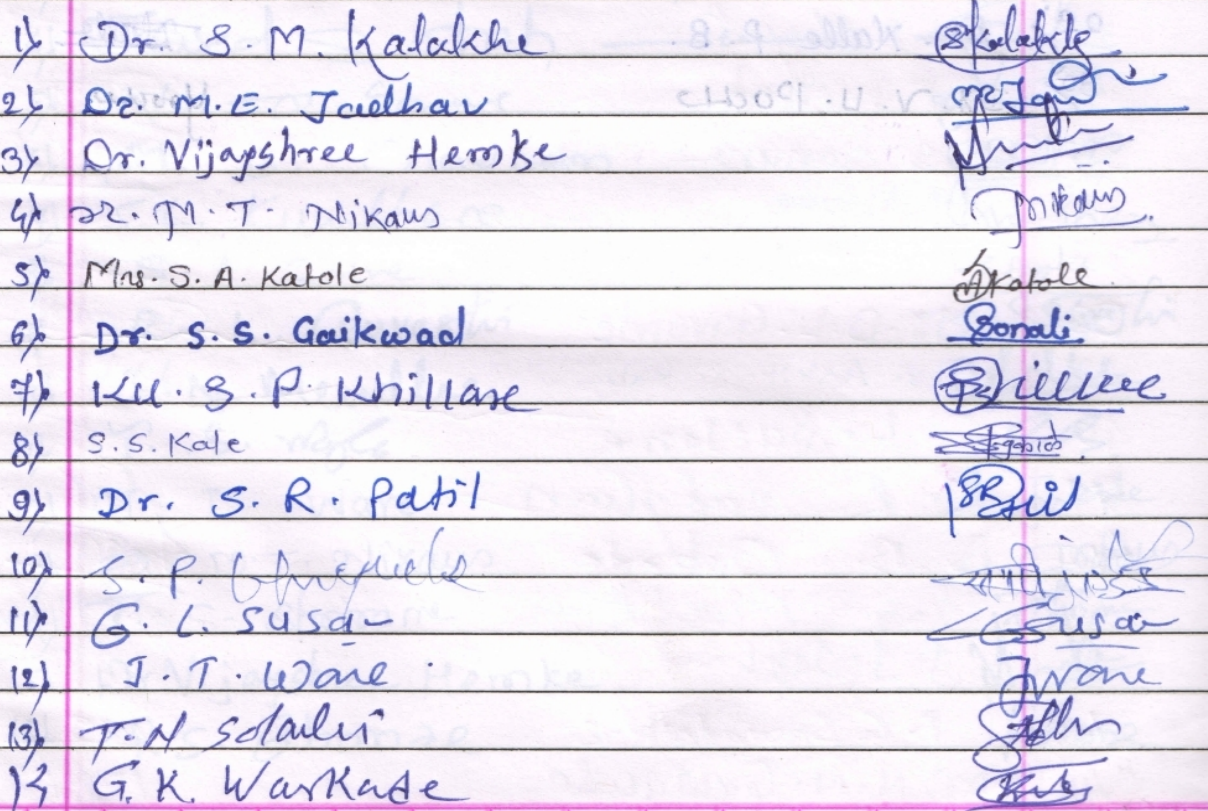 1) Dr. S. M. Kalakhe SKalakhe
2) Dr. M. E. Jadhav
3) Dr. Vijayshree Hemke
4) Dr. M. T. Nikam Nikam
5) Mrs. S. A. Katole SKatole
6) Dr. S. S. Gaikwad Sonali
7) KU. S. P. Khillare
8) S. S. Kale
9) Dr. S. R. Patil SRPatil
10) S. P.
11) G. L. Susar Susar
12) J. T. Wane JWane
13) T. N
14 G. K. Warkade